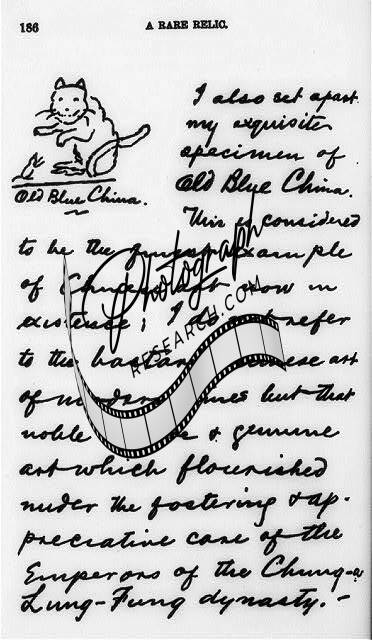 186
A RARE RELIC.
I also set apart
my exquisite
specimen of
Old Blue China.
Old Blue China.
This is considered
to be the finest example
of Chinese art now in
existence; I do not refer
to the Chinese art
of modern times but that
noble & genuine
art which flourished
under the fostering & ap-
preciative care of the
Emperors of the Chung-a-
Lung-Fung dynasty.—
Photograph
RESEARCH.COM